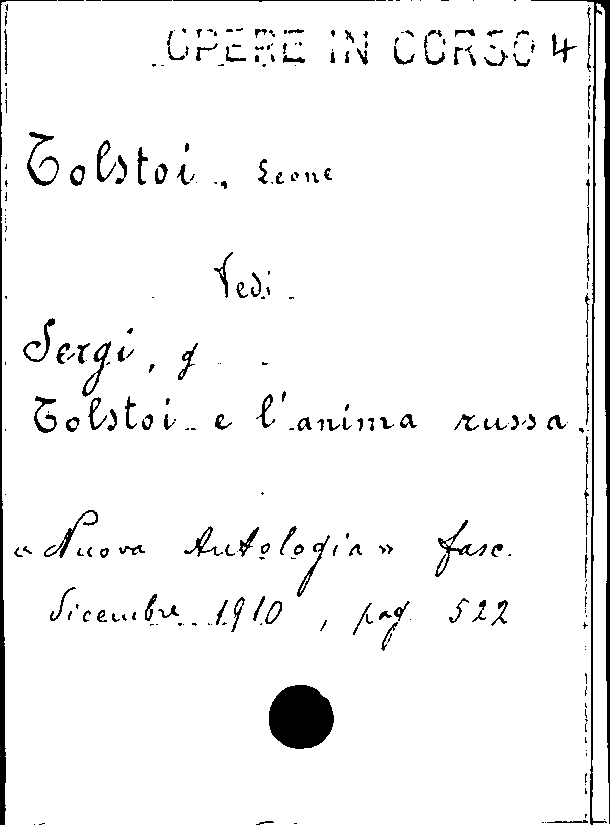 OPERE IN CORSO 4
Tolstoi, Leone
Vedi
Sergi, G
Tolstoi e l'anima russa.
« Nuova Antologia » fasc.
dicembre 1910, pag. 522